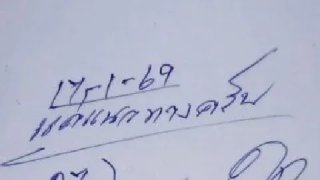 17-1-69
แค่แนวทางครับ